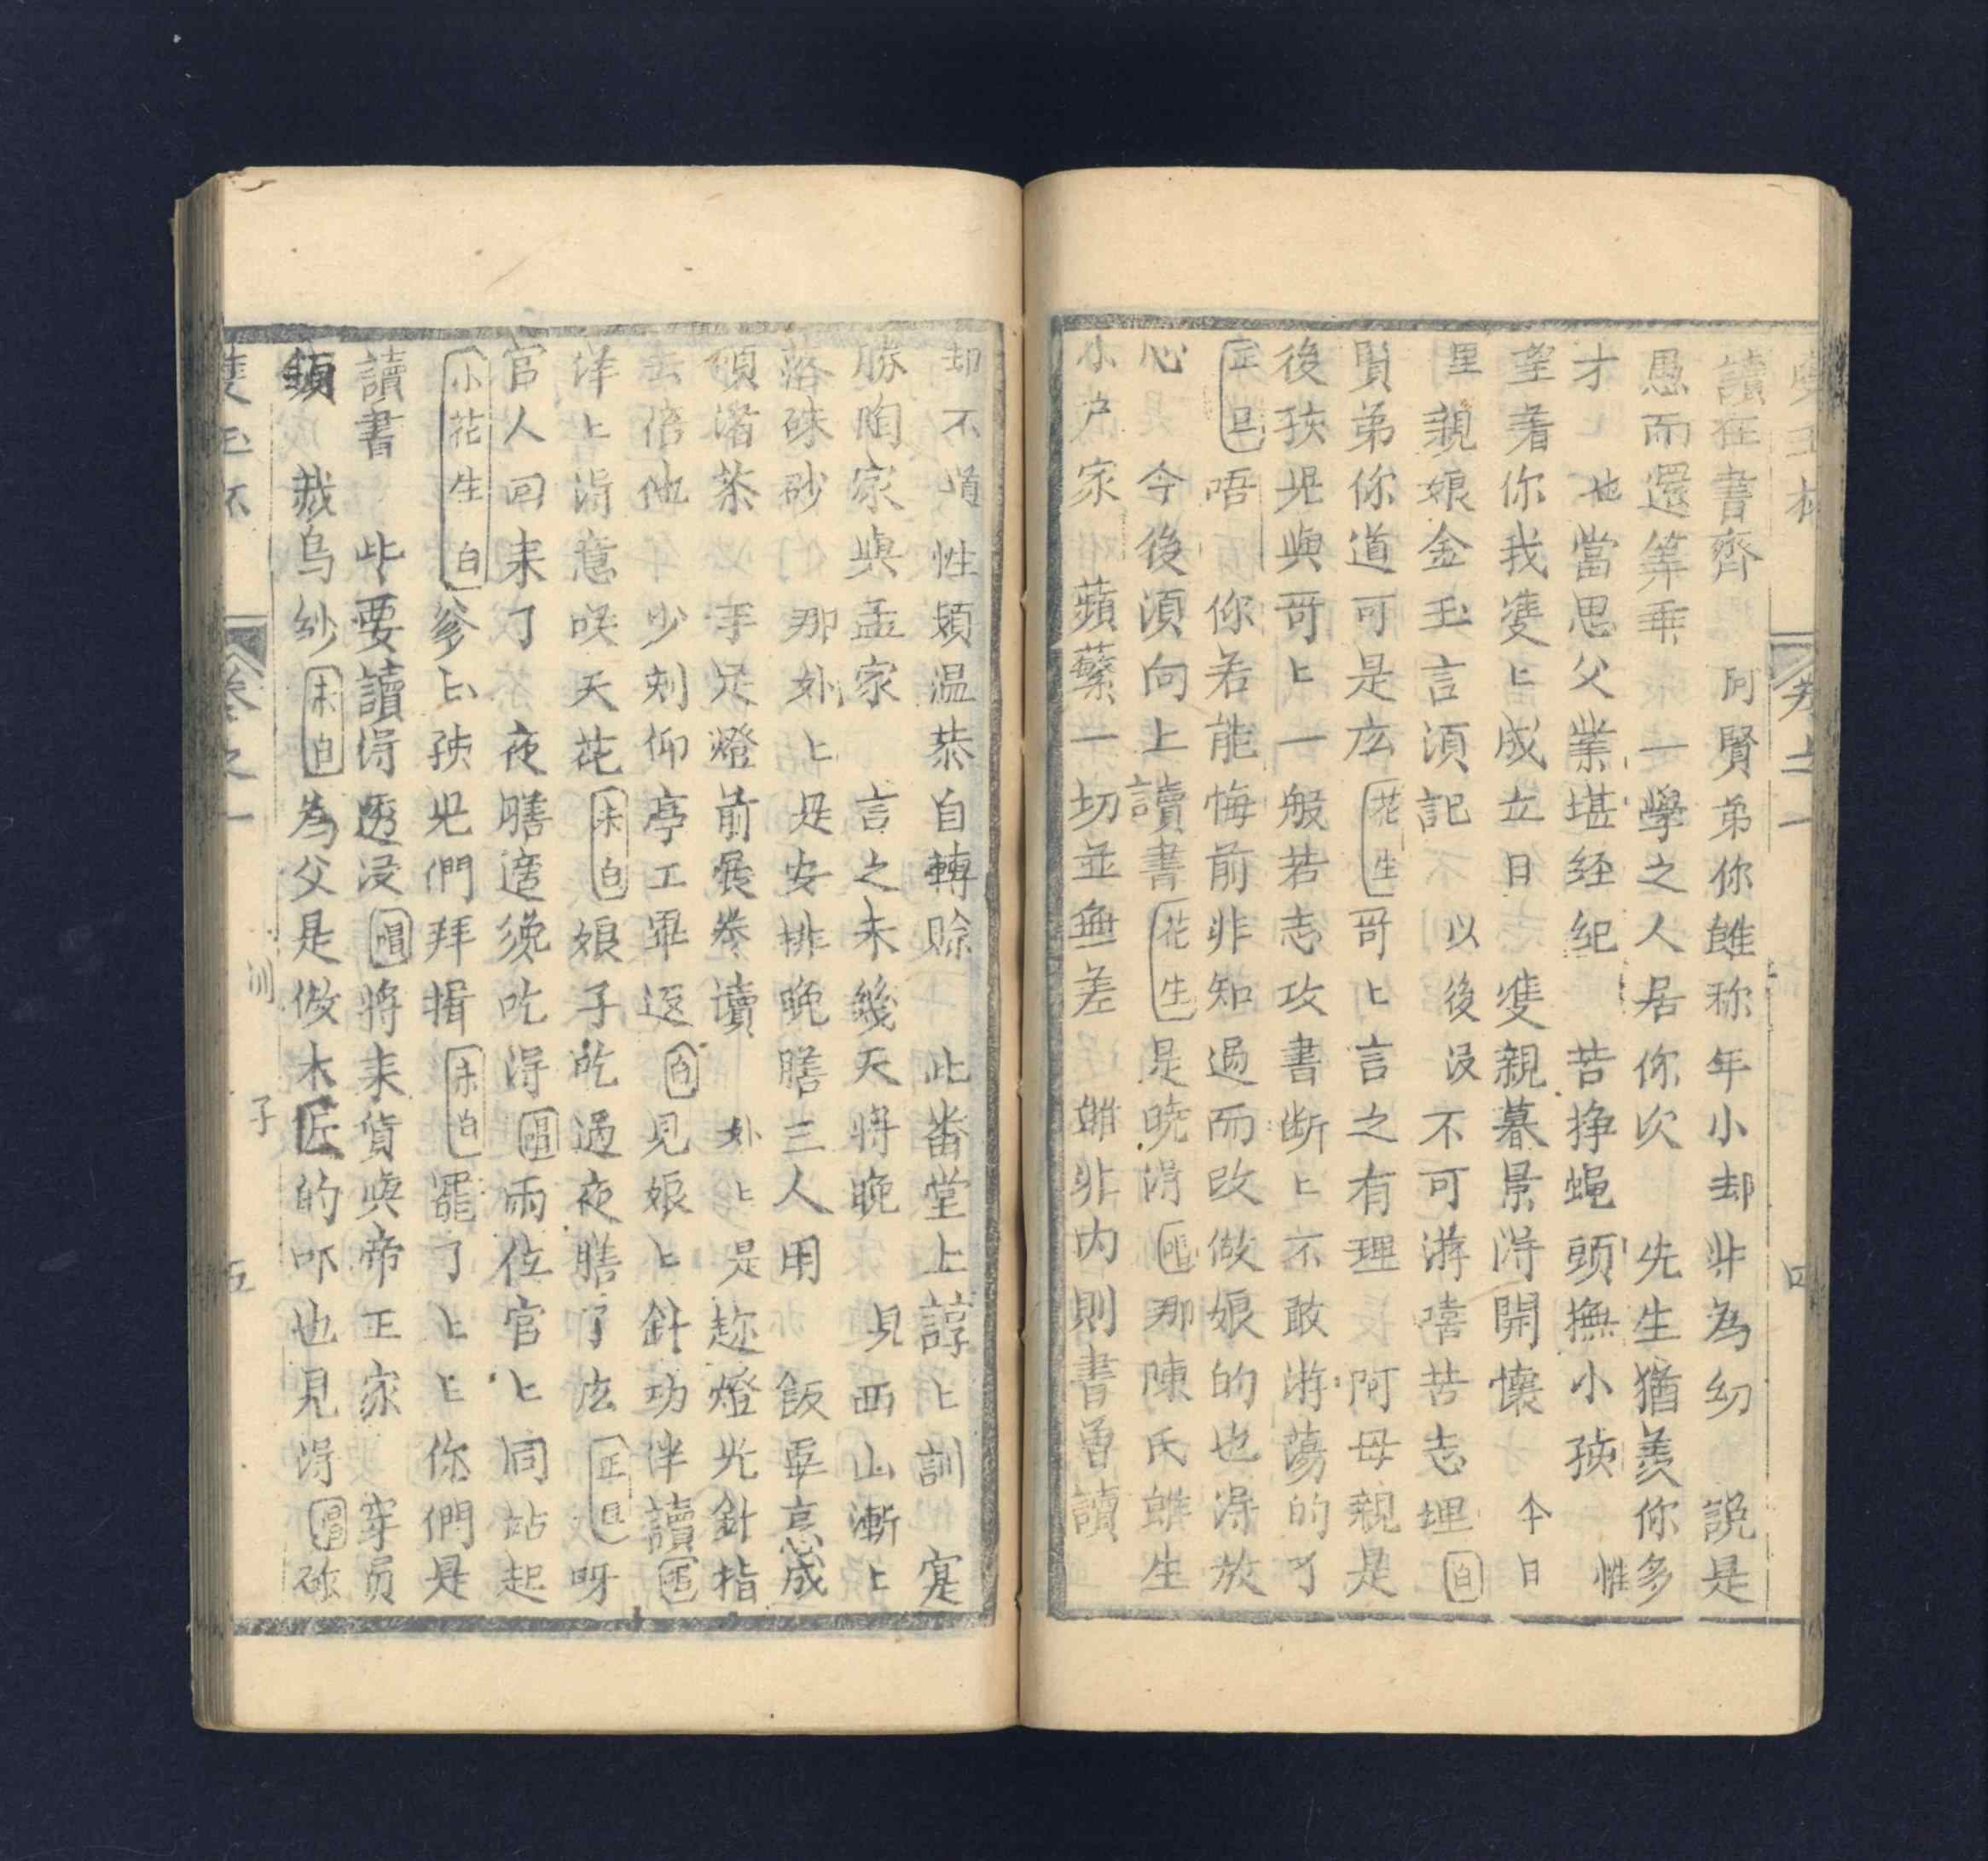 讀在書齊 阿賢弟你雖称年小却非為幼 説是
愚而還筭乖 一學之人居你次 先生猶羨你多
才 也當思父業堪経紀 苦挣蝇頭撫小孩 惟
望着你我凌ヒ成立日 𨾏親暮景淂開懷 今日
里 親娘金玉言須記 以後没不可游嬉苦志埋 白
賢弟你道可是庅 花生 哥ヒ言之有理 阿母親是
後孩児與哥ヒ一般若志攻書断ヒ不敢游蕩的了
正旦 唔 你若能悔前非知過而改做娘的也淂放
心 今後須向上讀書 花生 是曉淂 唱 那陳氏雖生
小户家 蘋蘩一切並無差 雖非内則書曽讀
却不道 性頬温恭自轉賒 此畨堂上諄ヒ訓 寔
勝陶家與孟家 言之未幾天將晚 見西山漸ヒ
落硃砂 那外ヒ是安排晚膳三人用 飯畢烹成
頓渚茶 手足燈前展卷讀 外ヒ是趂燈光針指
去倍他 少刻仰亭工畢返 白 見娘ヒ針功伴讀 唱
洋ヒ淂意咲天花 末白 娘子吃過夜膳了庅 正旦 呀
官人回来了 夜膳適纔吃淂 唱 兩位官ヒ同站起
小花生 白 爹ヒ孩児們拜揖 末白 罷了ヒヒ你們是
讀書 此要讀淂透没 唱 將来貨與帝王家 穿員
領 裁烏紗 末白 為父是做木匠的吓也見淂 唱
雙玉杯 卷之一 五